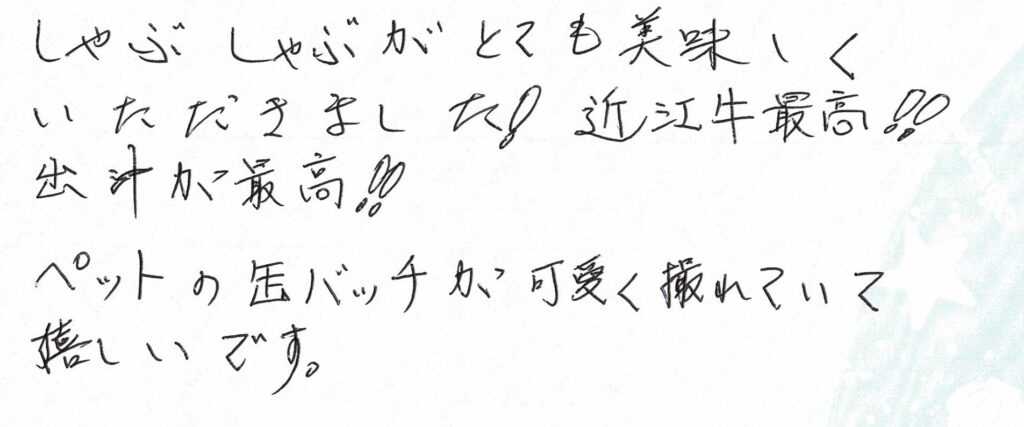 しゃぶしゃぶがとても美味しく
いただきました! 近江牛最高!!
出汁が最高!!
ペットの缶バッチが可愛く撮れていて
嬉しいです。